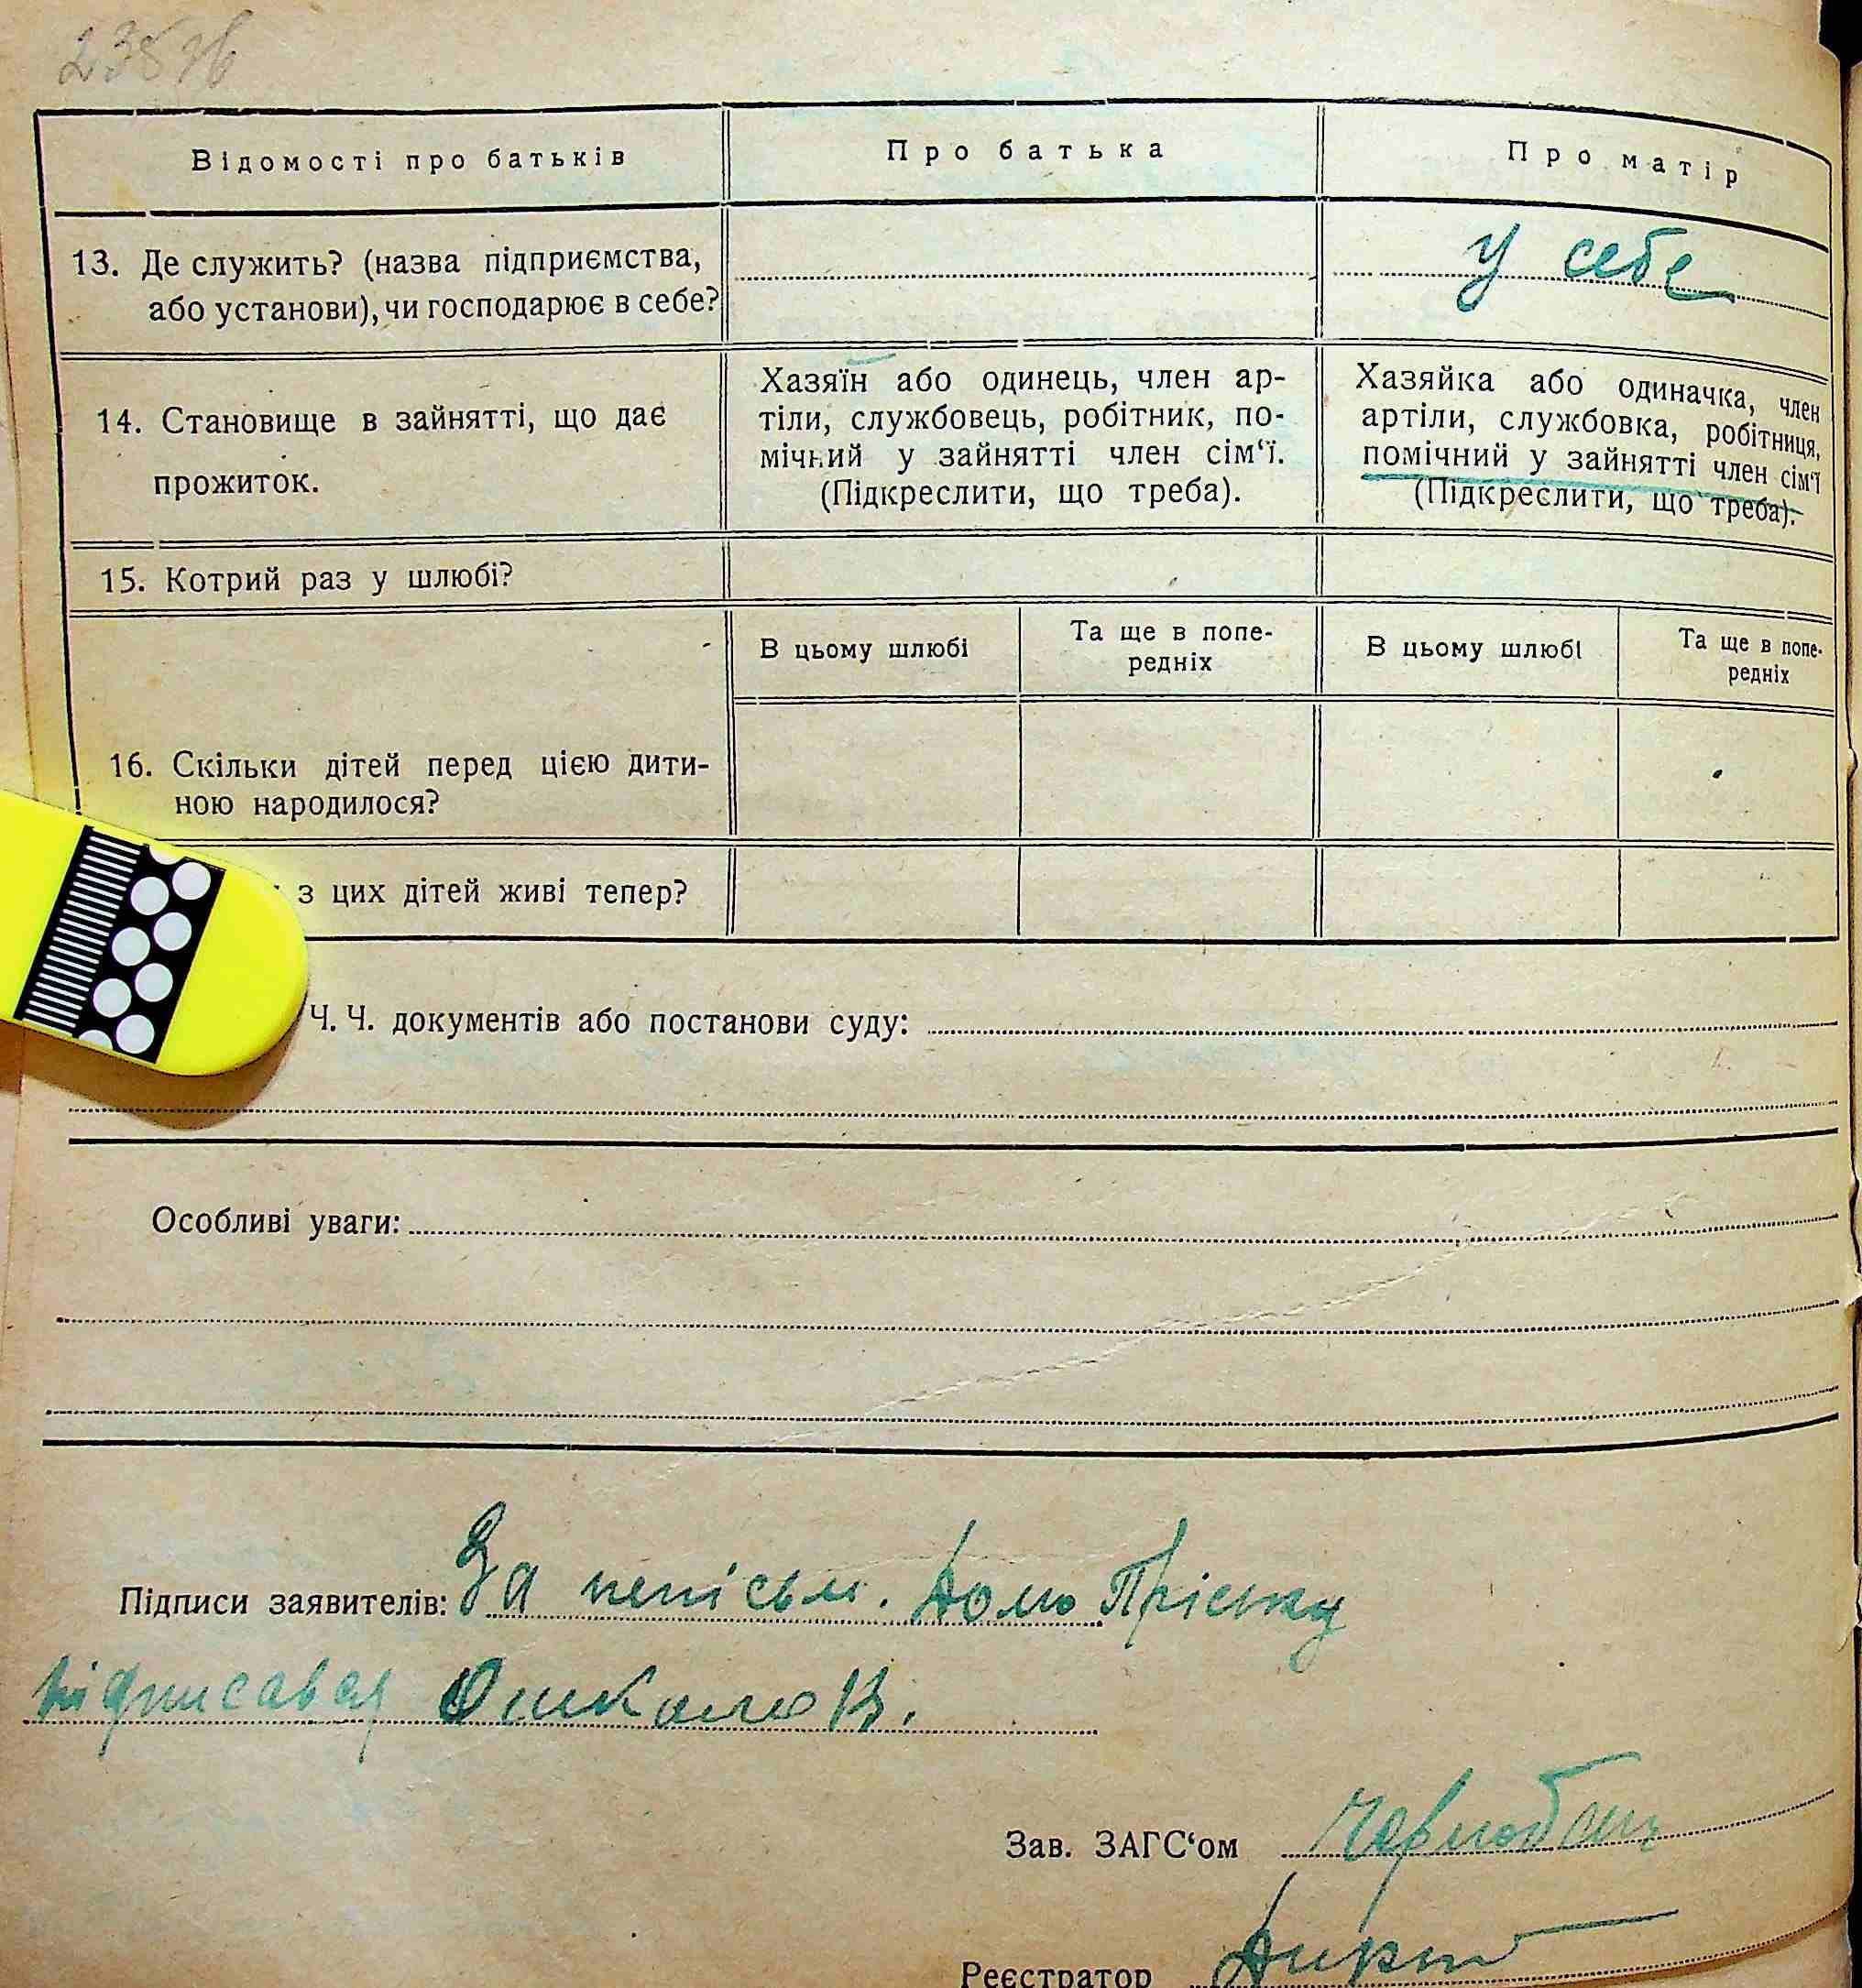 238 зв
Відомості про батьків
Про батька
Про матір
13. Де служить? (назва підприємства,
або установи), чи господарює в себе?
у себе
14. Становище в зайнятті, що дає
прожиток.
Хазяїн або одинець, член ар-
тіли, службовець, робітник, по-
мічний у зайнятті член сім‘ї.
(Підкреслити, що треба).
Хазяйка або одиначка, член
артіли, службовка, робітниця,
помічний у зайнятті член сім‘ї
(Підкреслити, що треба).
15. Котрий раз у шлюбі?
В цьому шлюбі
Та ще в попе-
редніх
В цьому шлюбі
Та ще в попе-
редніх
16. Скільки дітей перед цією дити-
ною народилося?
з цих дітей живі тепер?
Ч. Ч. документів або постанови суду:
Особливі уваги:
Підписи заявителів: За непісьм.
підписався
Зав. ЗАГС‘ом
Реєстратор